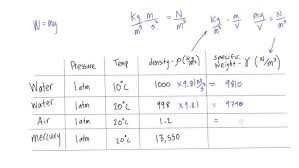 W = mg
Kg/m³ m/s² = N/m³
Kg/m³ = m/V mg/V = N/m³
Pressure Temp density - ρ (Kg/m³) Specific Weight - γ (N/m³)
Water 1 atm 10°C 1000 × 9.81 m/s² = 9810
Water 1 atm 20°C 998 × 9.81 = 9790
Air 1 atm 20°C 1.2 =
Mercury 1 atm 20°C 13,550